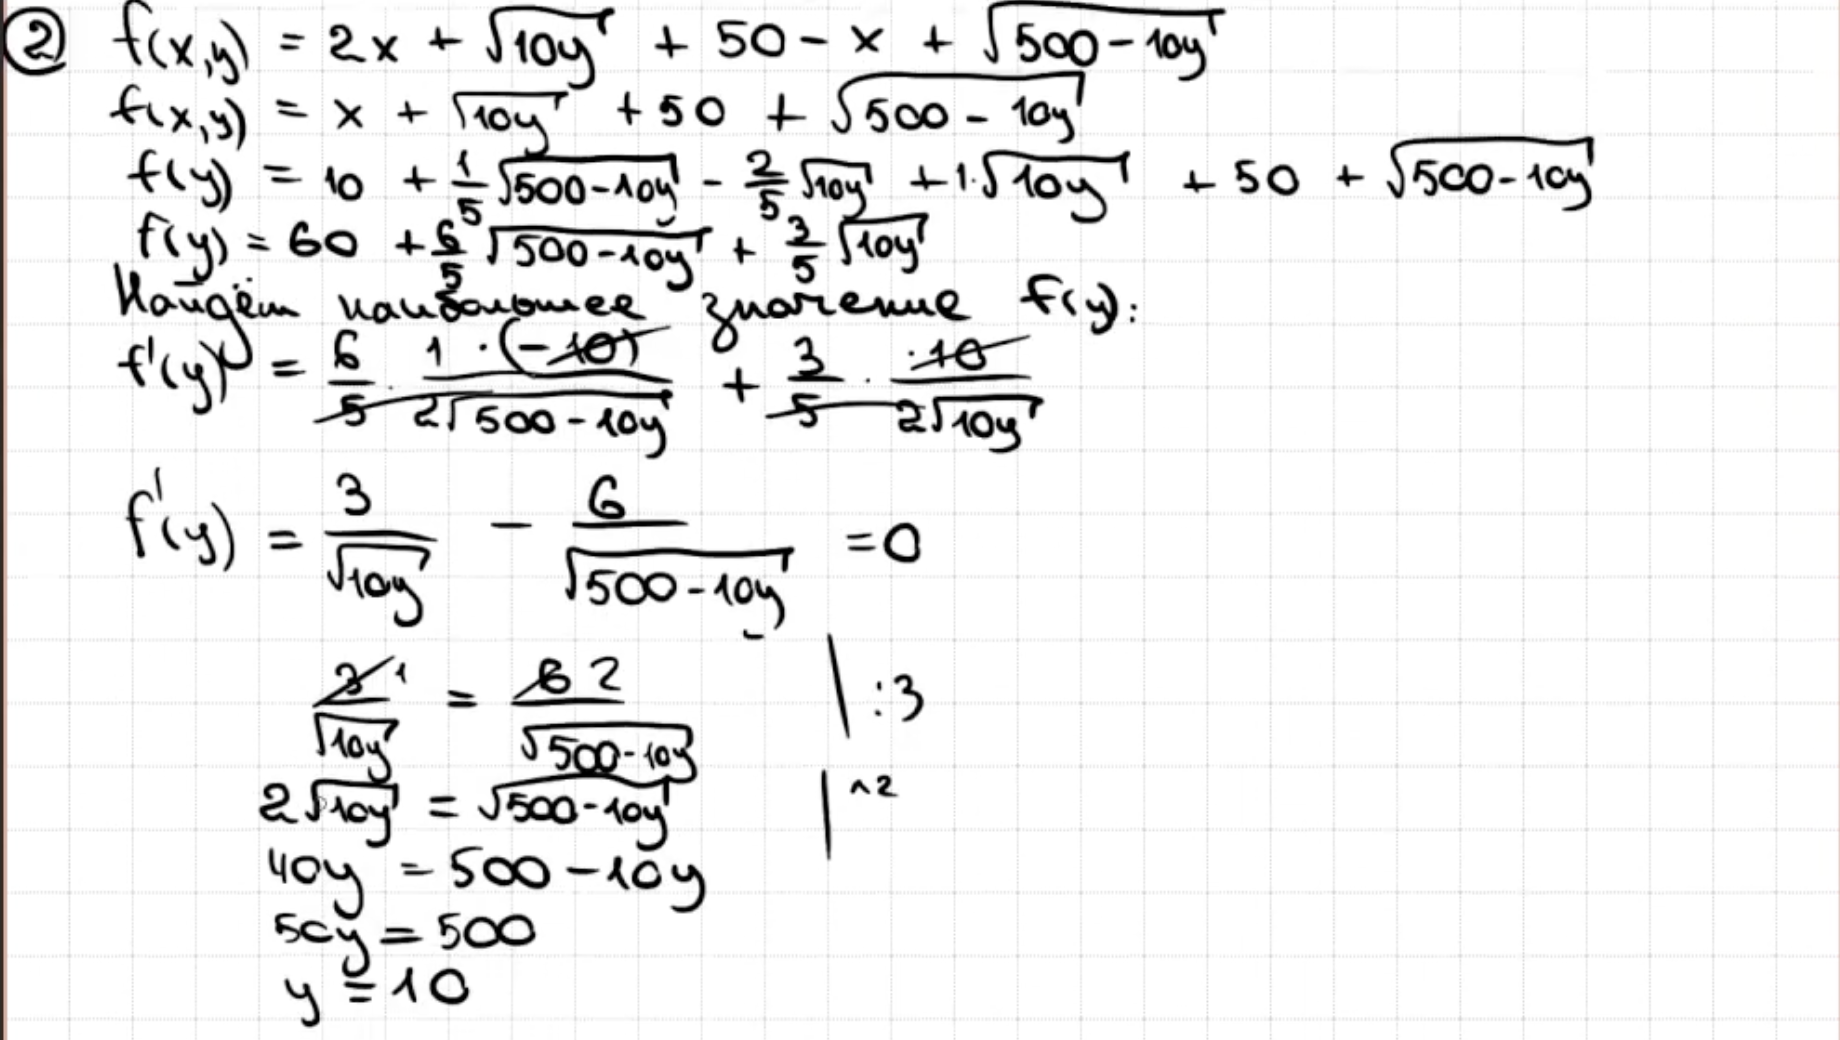 ② f(x,y) = 2x + √(10y) + 50 - x + √(500 - 10y)
f(x,y) = x + √(10y) + 50 + √(500 - 10y)
f(y) = 10 + 1/5 √(500-10y) - 2/5 √(10y) + 1·√(10y) + 50 + √(500-10y)
f(y) = 60 + 6/5 √(500-10y) + 3/5 √(10y)
Найдём наибольшее значение f(y):
f'(y) = 6/5 · 1·(-10)/(2√(500-10y)) + 3/5 · ·10/(2√(10y))
f'(y) = 3/√(10y) - 6/√(500-10y) = 0
3 1/√(10y) = 6 2/√(500-10y) | :3
2√(10y) = √(500-10y) | ^2
40y = 500 - 10y
50y = 500
y = 10